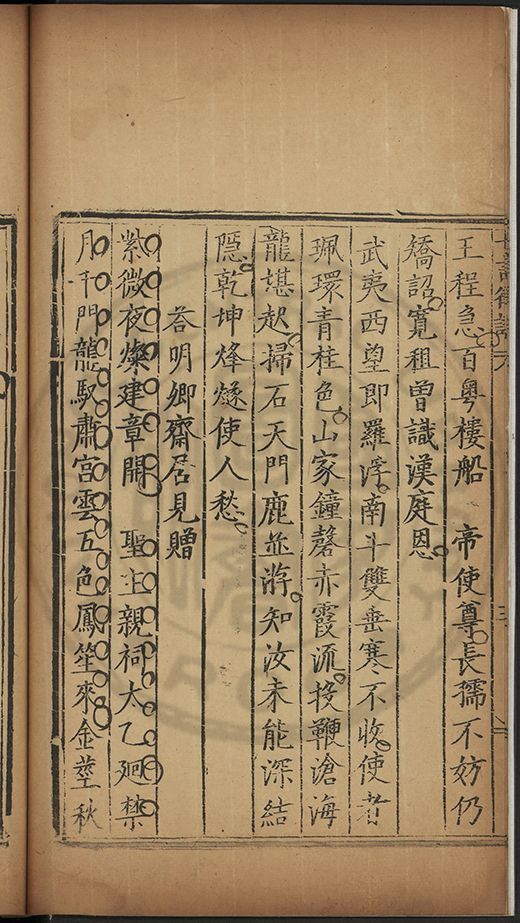 王程急百粵樓船　帝使尊長孺不妨仍
矯詔寬租曾識漢庭恩
武夷西望即羅浮南斗雙垂寒不收使者
珮環青柱色山家鐘磬赤霞流投鞭滄海
龍堪起掃石天門鹿並游知汝未能深結
隱乾坤烽燧使人愁
荅明卿齋居見贈
紫微夜燦建章開　聖主親祠太乙廻禁
月千門龍馭肅宮雲五色鳳笙來金莖秋